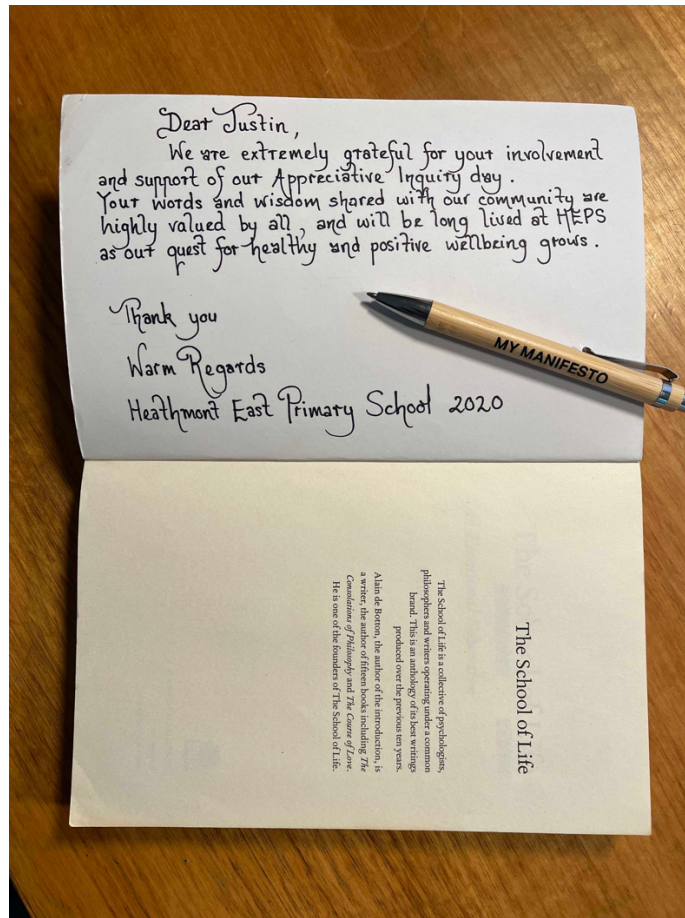 Dear Justin,
We are extremely grateful for your involvement
and support of our Appreciative Inquiry day.
Your words and wisdom shared with our community are
highly valued by all, and will be long lived at HEPS
as our quest for healthy and positive wellbeing grows.
Thank you
Warm Regards
Heathmont East Primary School 2020
MY MANIFESTO
The School of Life
The School of Life is a collective of psychologists,
philosophers and writers operating under a common
brand. This is an anthology of its best writings
produced over the previous ten years.
Alain de Botton, the author of the introduction, is
a writer, the author of fifteen books including The
Consolations of Philosophy and The Course of Love.
He is one of the founders of The School of Life.